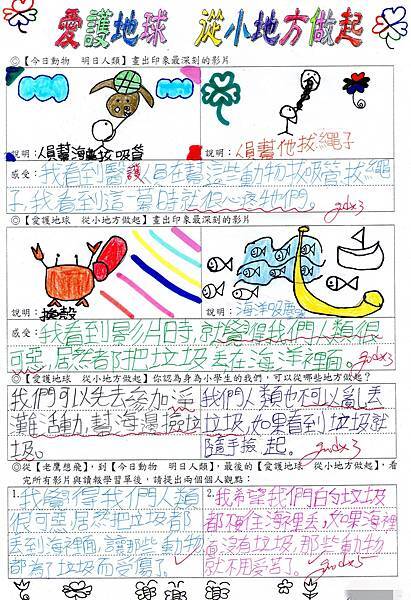 愛護地球 從小地方做起
◎【今日動物 明日人類】畫出印象最深刻的影片
說明：人員幫海龜拔吸管
說明：人員幫他拔繩子
感受：我看到醫護人員在幫這些動物拔吸管、拔繩
子，我看到這一幕時就很心疼牠們。
good×3
◎【愛護地球 從小地方做起】畫出印象最深刻的影片
說明：換殼
說明：海洋吸塵
感受：我看到影片時，就覺得我們人類很
可惡，居然都把垃圾丟在海洋裡面。
good×3
◎【愛護地球 從小地方做起】你認為身為小學生的我們，可以從哪些地方做起？
我們可以先去參加淨
灘活動，幫海邊撿垃
圾。
我們人類也不可以亂丟
垃圾，如果看到垃圾就
隨手撿起。
good×3
◎從【老鷹想飛】，到【今日動物 明日人類】，最後的【愛護地球 從小地方做起】，看
完所有影片與讀報學習單後，請提出兩個個人觀點：
1.我覺得我們人類
很可惡居然把垃圾都
丟到海裡面，讓那些動物
都為了垃圾而受傷了。
2.我希望我們的垃圾
都不要往海裡丟，如果海裡
面沒有垃圾，那些動物
就不用受苦了。
good×5